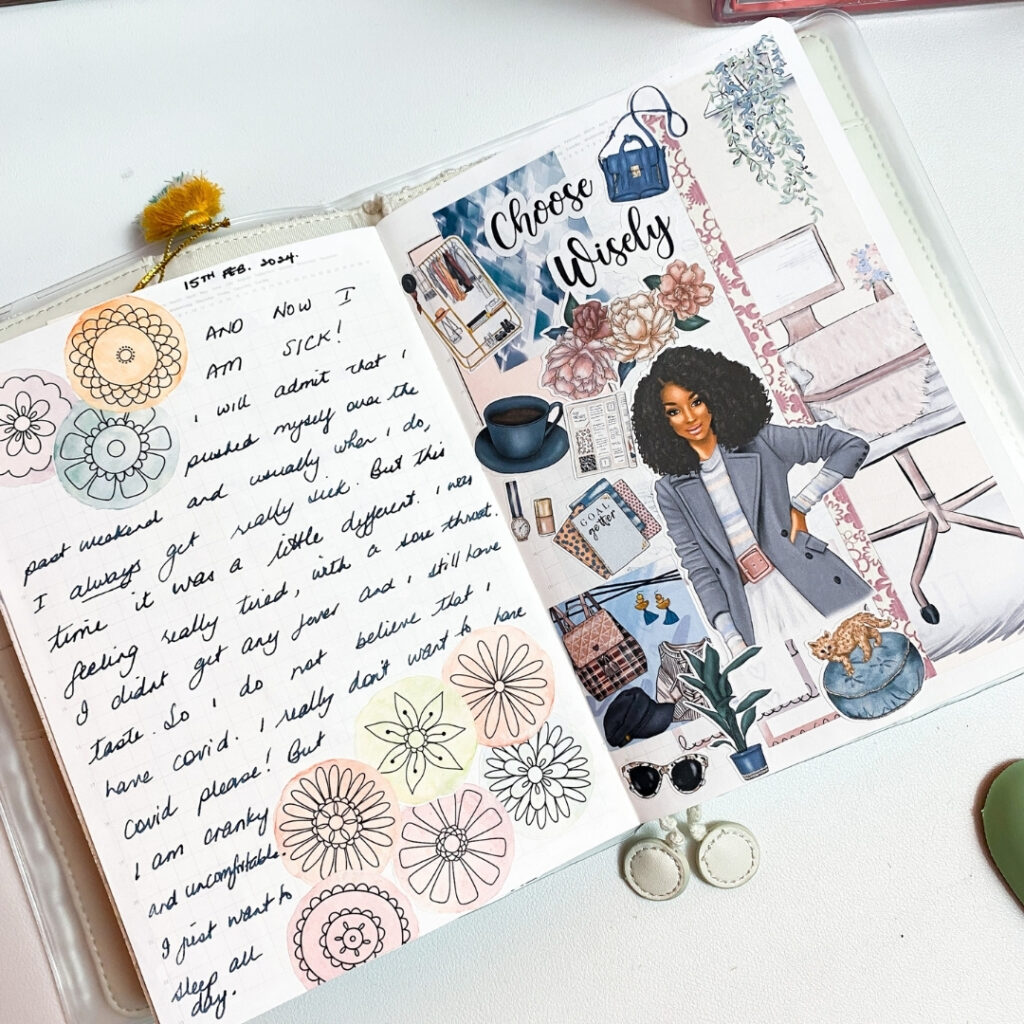 15TH FEB. 2024.
AND NOW I
AM SICK!
I will admit that I
pushed myself over the
past weekend and usually when I do,
I always get really sick. But this
time it was a little different. I was
feeling really tired, with a sore throat.
I didnt get any fever and I still have
taste. So I do not believe that I
have covid. I really don't want to have
Covid please! But
I am cranky
and uncomfortable.
I just want to
sleep all
day.
Choose
Wisely
GOAL
getter